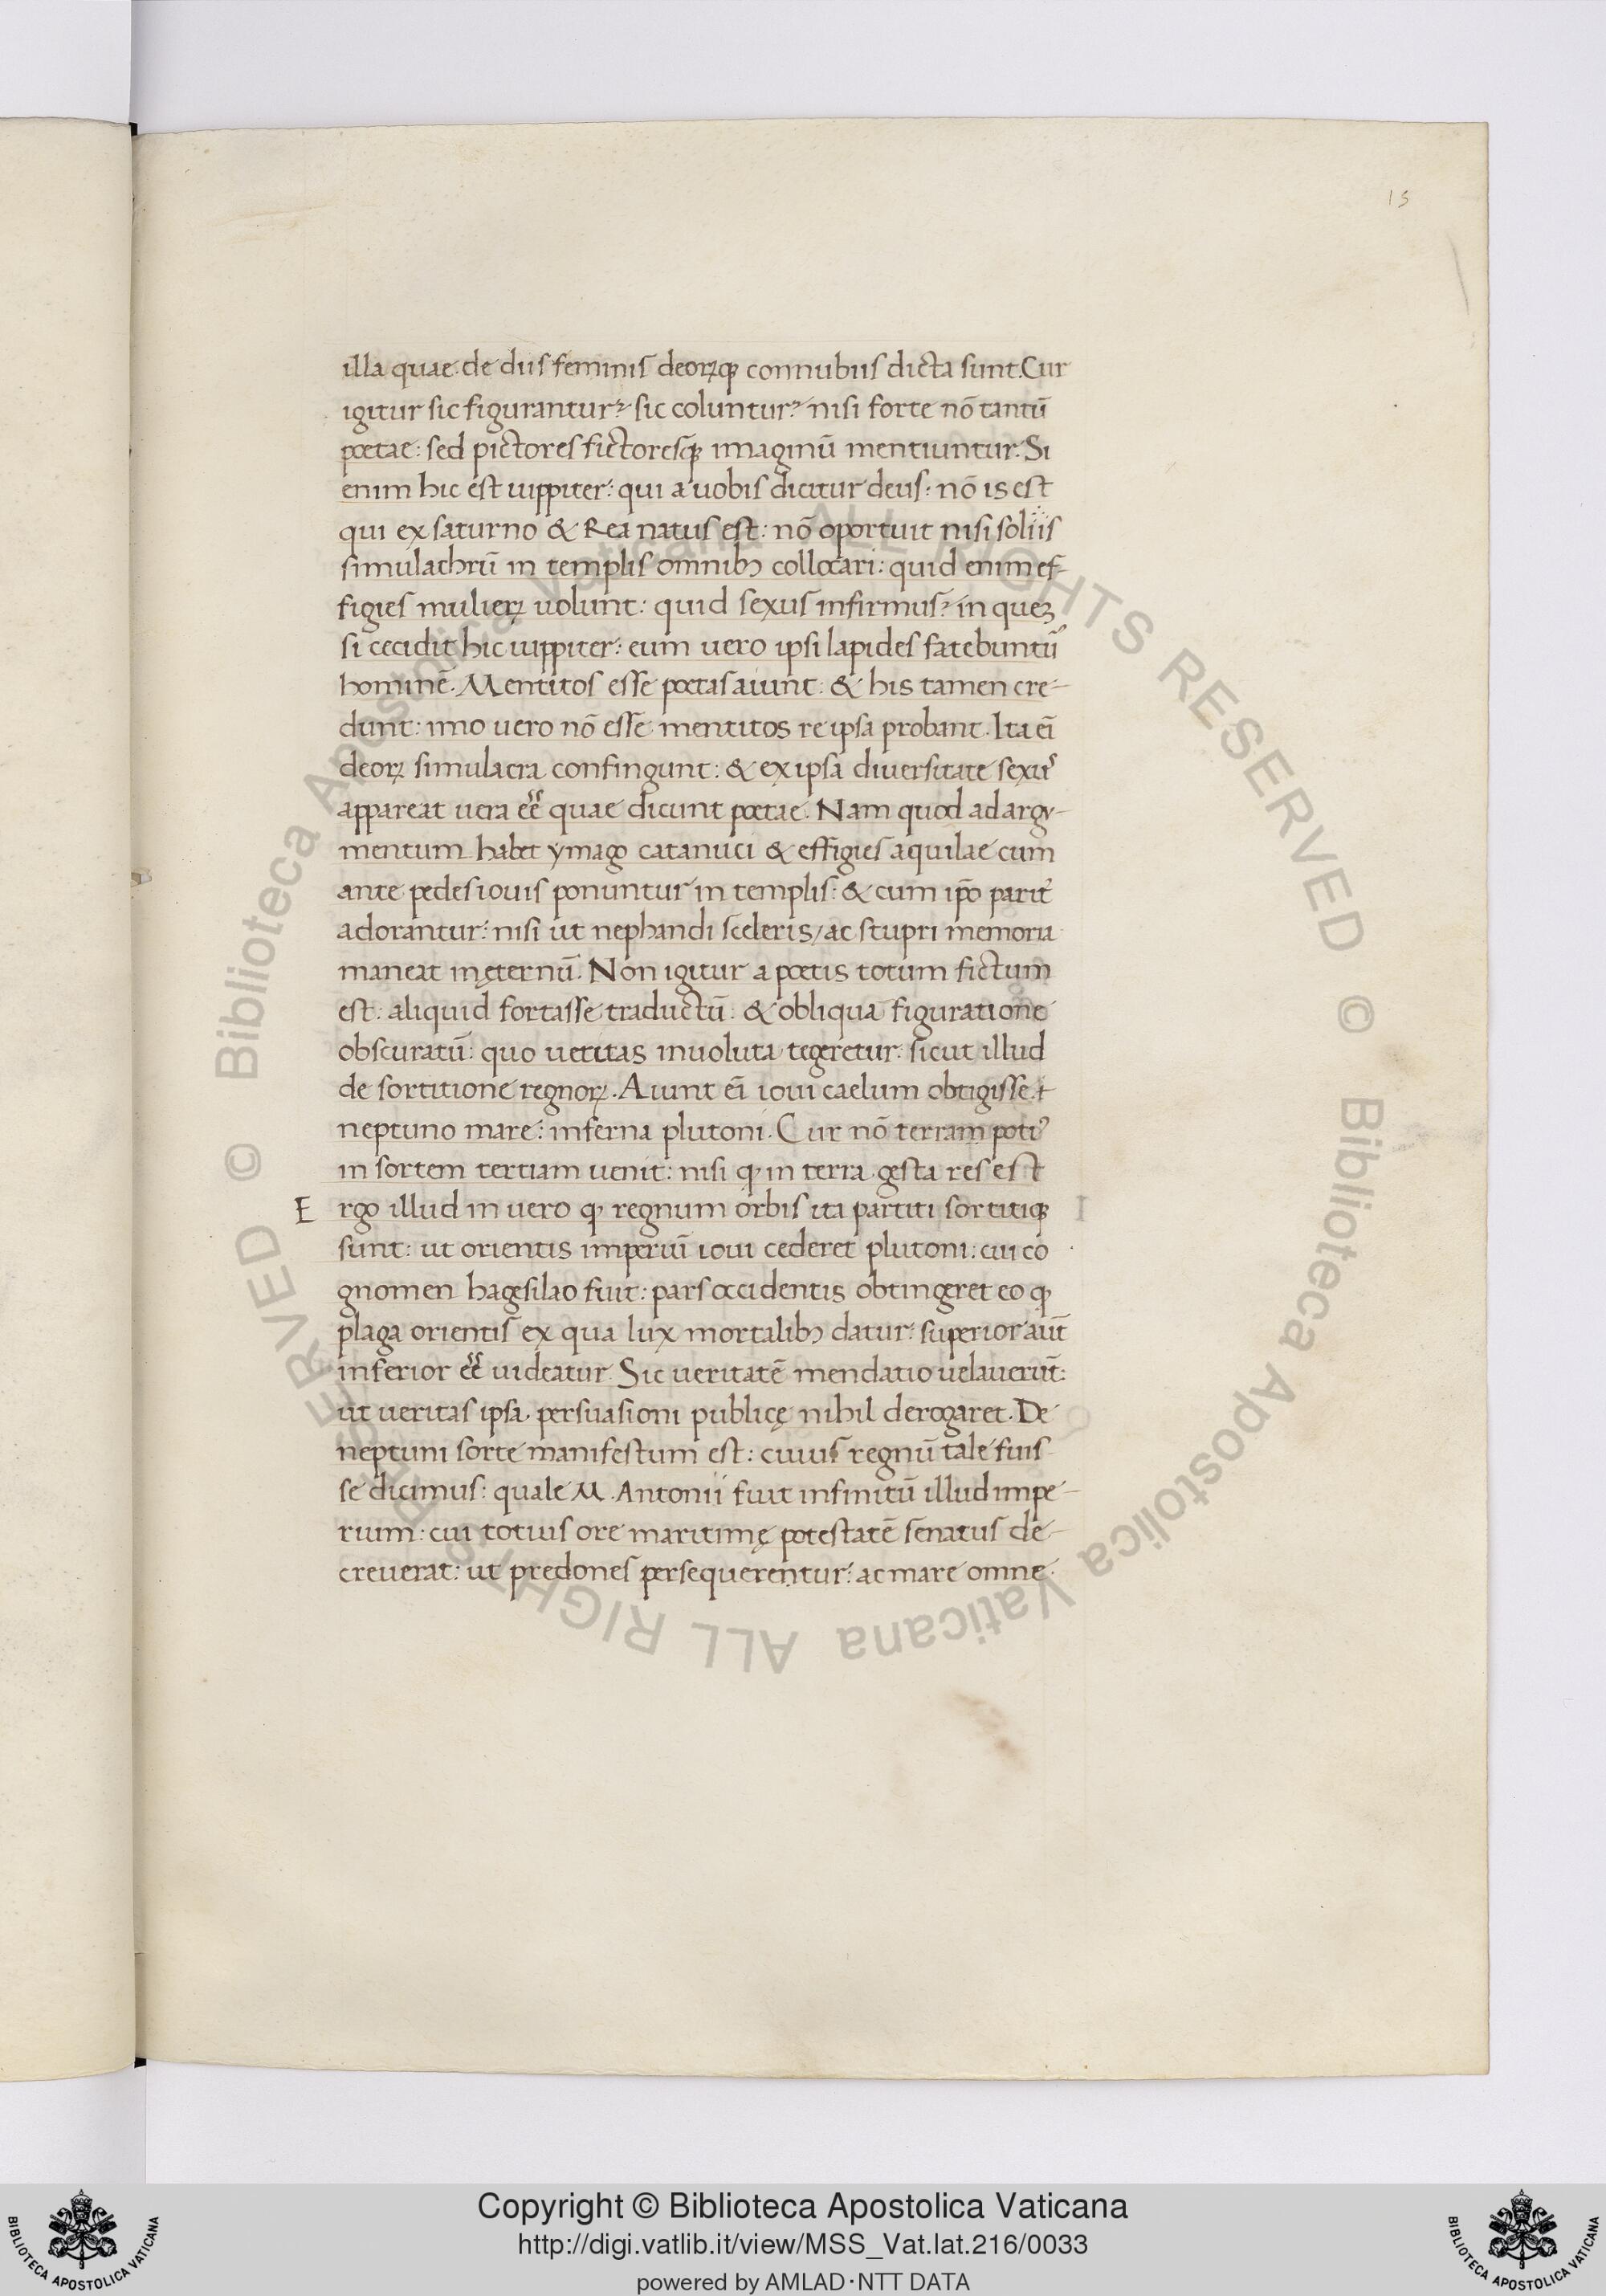 13
illa quae de diis feminis deoꝝqꝫ connubiis dicta sunt. Cur
igitur sic figurantur? sic coluntur? nisi forte nō tantū
poetae: sed pictores fictoresqꝫ imaginū mentiuntur. Si
enim hic est iuppiter: qui a uobis dicitur deus: nō is est
qui ex saturno & Rea natus est: nō oportuit nisi soliis
simulachrū in templis omnibꝫ collocari: quid enim ef-
figies mulieꝝ uolunt: quid sexus infirmus? in queꝫ
si cecidit hic iuppiter: eum uero ipsi lapides fatebuntū
hominē. Mentitos esse poetas aiunt: & his tamen cre-
dunt: imo uero nō esse mentitos re ipsa probant. Ita ei̅
deoꝝ simulacra confingunt: & ex ipsa diuersitate sexuꝰ
appareat uera ee̅ quae dicunt poetae. Nam quod ad argu-
mentum habet ymago catanuci & effigies aquilae cum
ante pedes iouis ponuntur in templis: & cum ip̅o parit̉
adorantur: nisi ut nephandi sceleris/ ac stupri memoria
maneat in ęternū. Non igitur a poetis totum fictum
est: aliquid fortasse traductū: & obliqua figuratione
obscuratū: quo ueritas inuoluta tegeretur: sicut illud
de sortitione regnoꝝ. Aiunt ei̅ ioui caelum obtigisse:
neptuno mare: inferna plutoni. Cur nō terram potiꝰ
in sortem tertiam uenit: nisi qꝫ in terra gesta res est
E rgo illud in uero qꝫ regnum orbis ita partiti sortitiqꝫ
sunt: ut orientis imperiū ioui cederet plutoni: cui co
gnomen hagesilao fuit: pars occidentis obtingeret eo qꝫ
plaga orientis ex qua lux mortalibꝫ datur: superior aut̅
inferior ee̅ uideatur. Sic ueritatē mendatio uelauerūt:
ut ueritas ipsa persuasioni publicę nihil derogaret. De
neptuni sorte manifestum est: cuius regnū tale fuis
se dicimus: quale M. Antonii fuit infinitū illud impe-
rium: cui totius ore maritimę potestatē senatus de-
creuerat: ut predones persequerentur: ac mare omne
© Biblioteca Apostolica Vaticana ALL RIGHTS RESERVED © Biblioteca Apostolica Vaticana ALL RIGHTS RESERVED
Copyright © Biblioteca Apostolica Vaticana
http://digi.vatlib.it/view/MSS_Vat.lat.216/0033
powered by AMLAD·NTT DATA
BIBLIOTECA APOSTOLICA VATICANA
BIBLIOTECA APOSTOLICA VATICANA